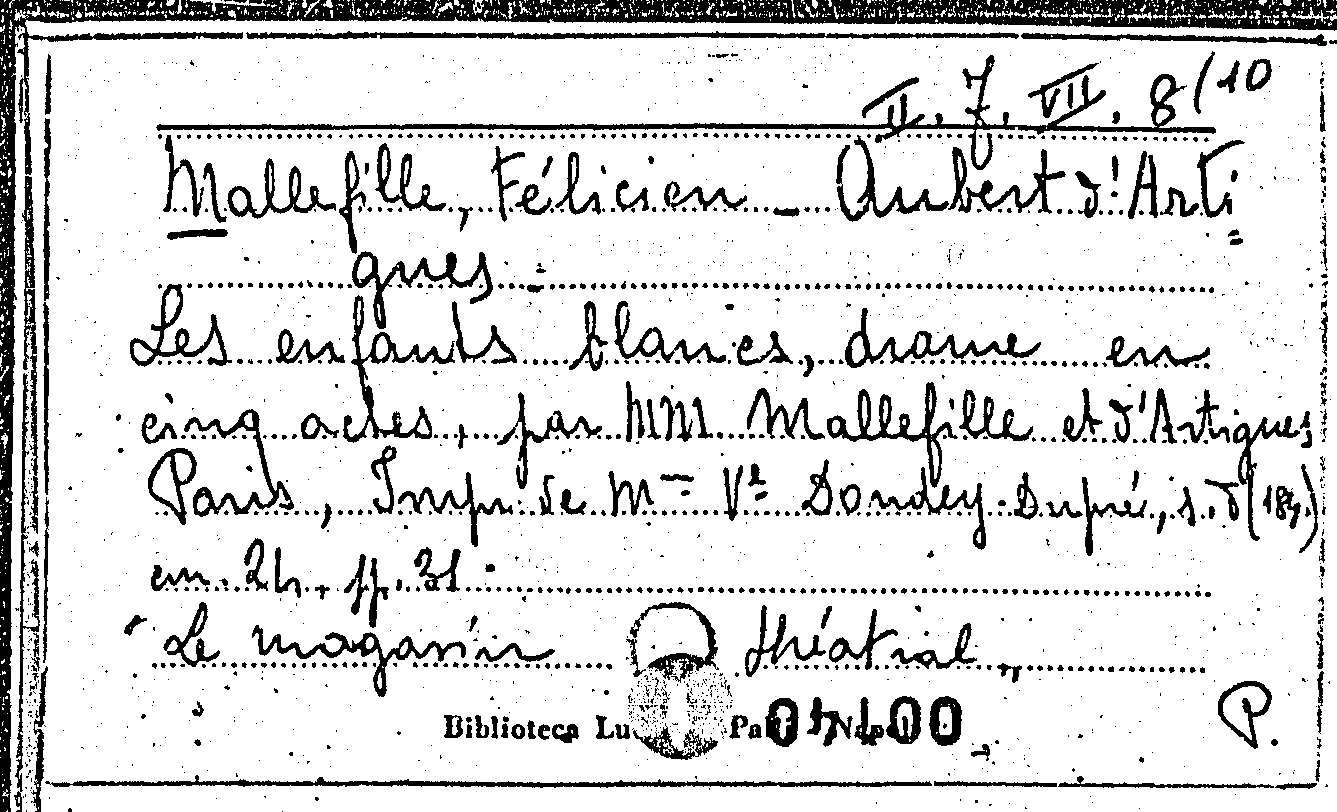 II. 7. VII. 8/10
Mallefille, Félicien - Aubert d'Arti=
gues -
Les enfants blancs, drame en
cinq actes, par MM Mallefille et d'Artigues
Paris, Impr. de Mme Ve Dondey-Dupré, s. d
cm. 24, pp. 31.
"Le magasin théatral"
Biblioteca Lu Pa Na
P.